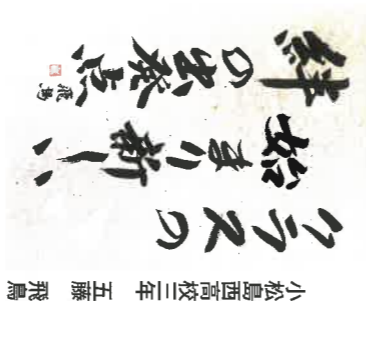 クラスの
始まり新しい
絆の出発点
飛鳥
小松島西高校三年 五藤 飛鳥